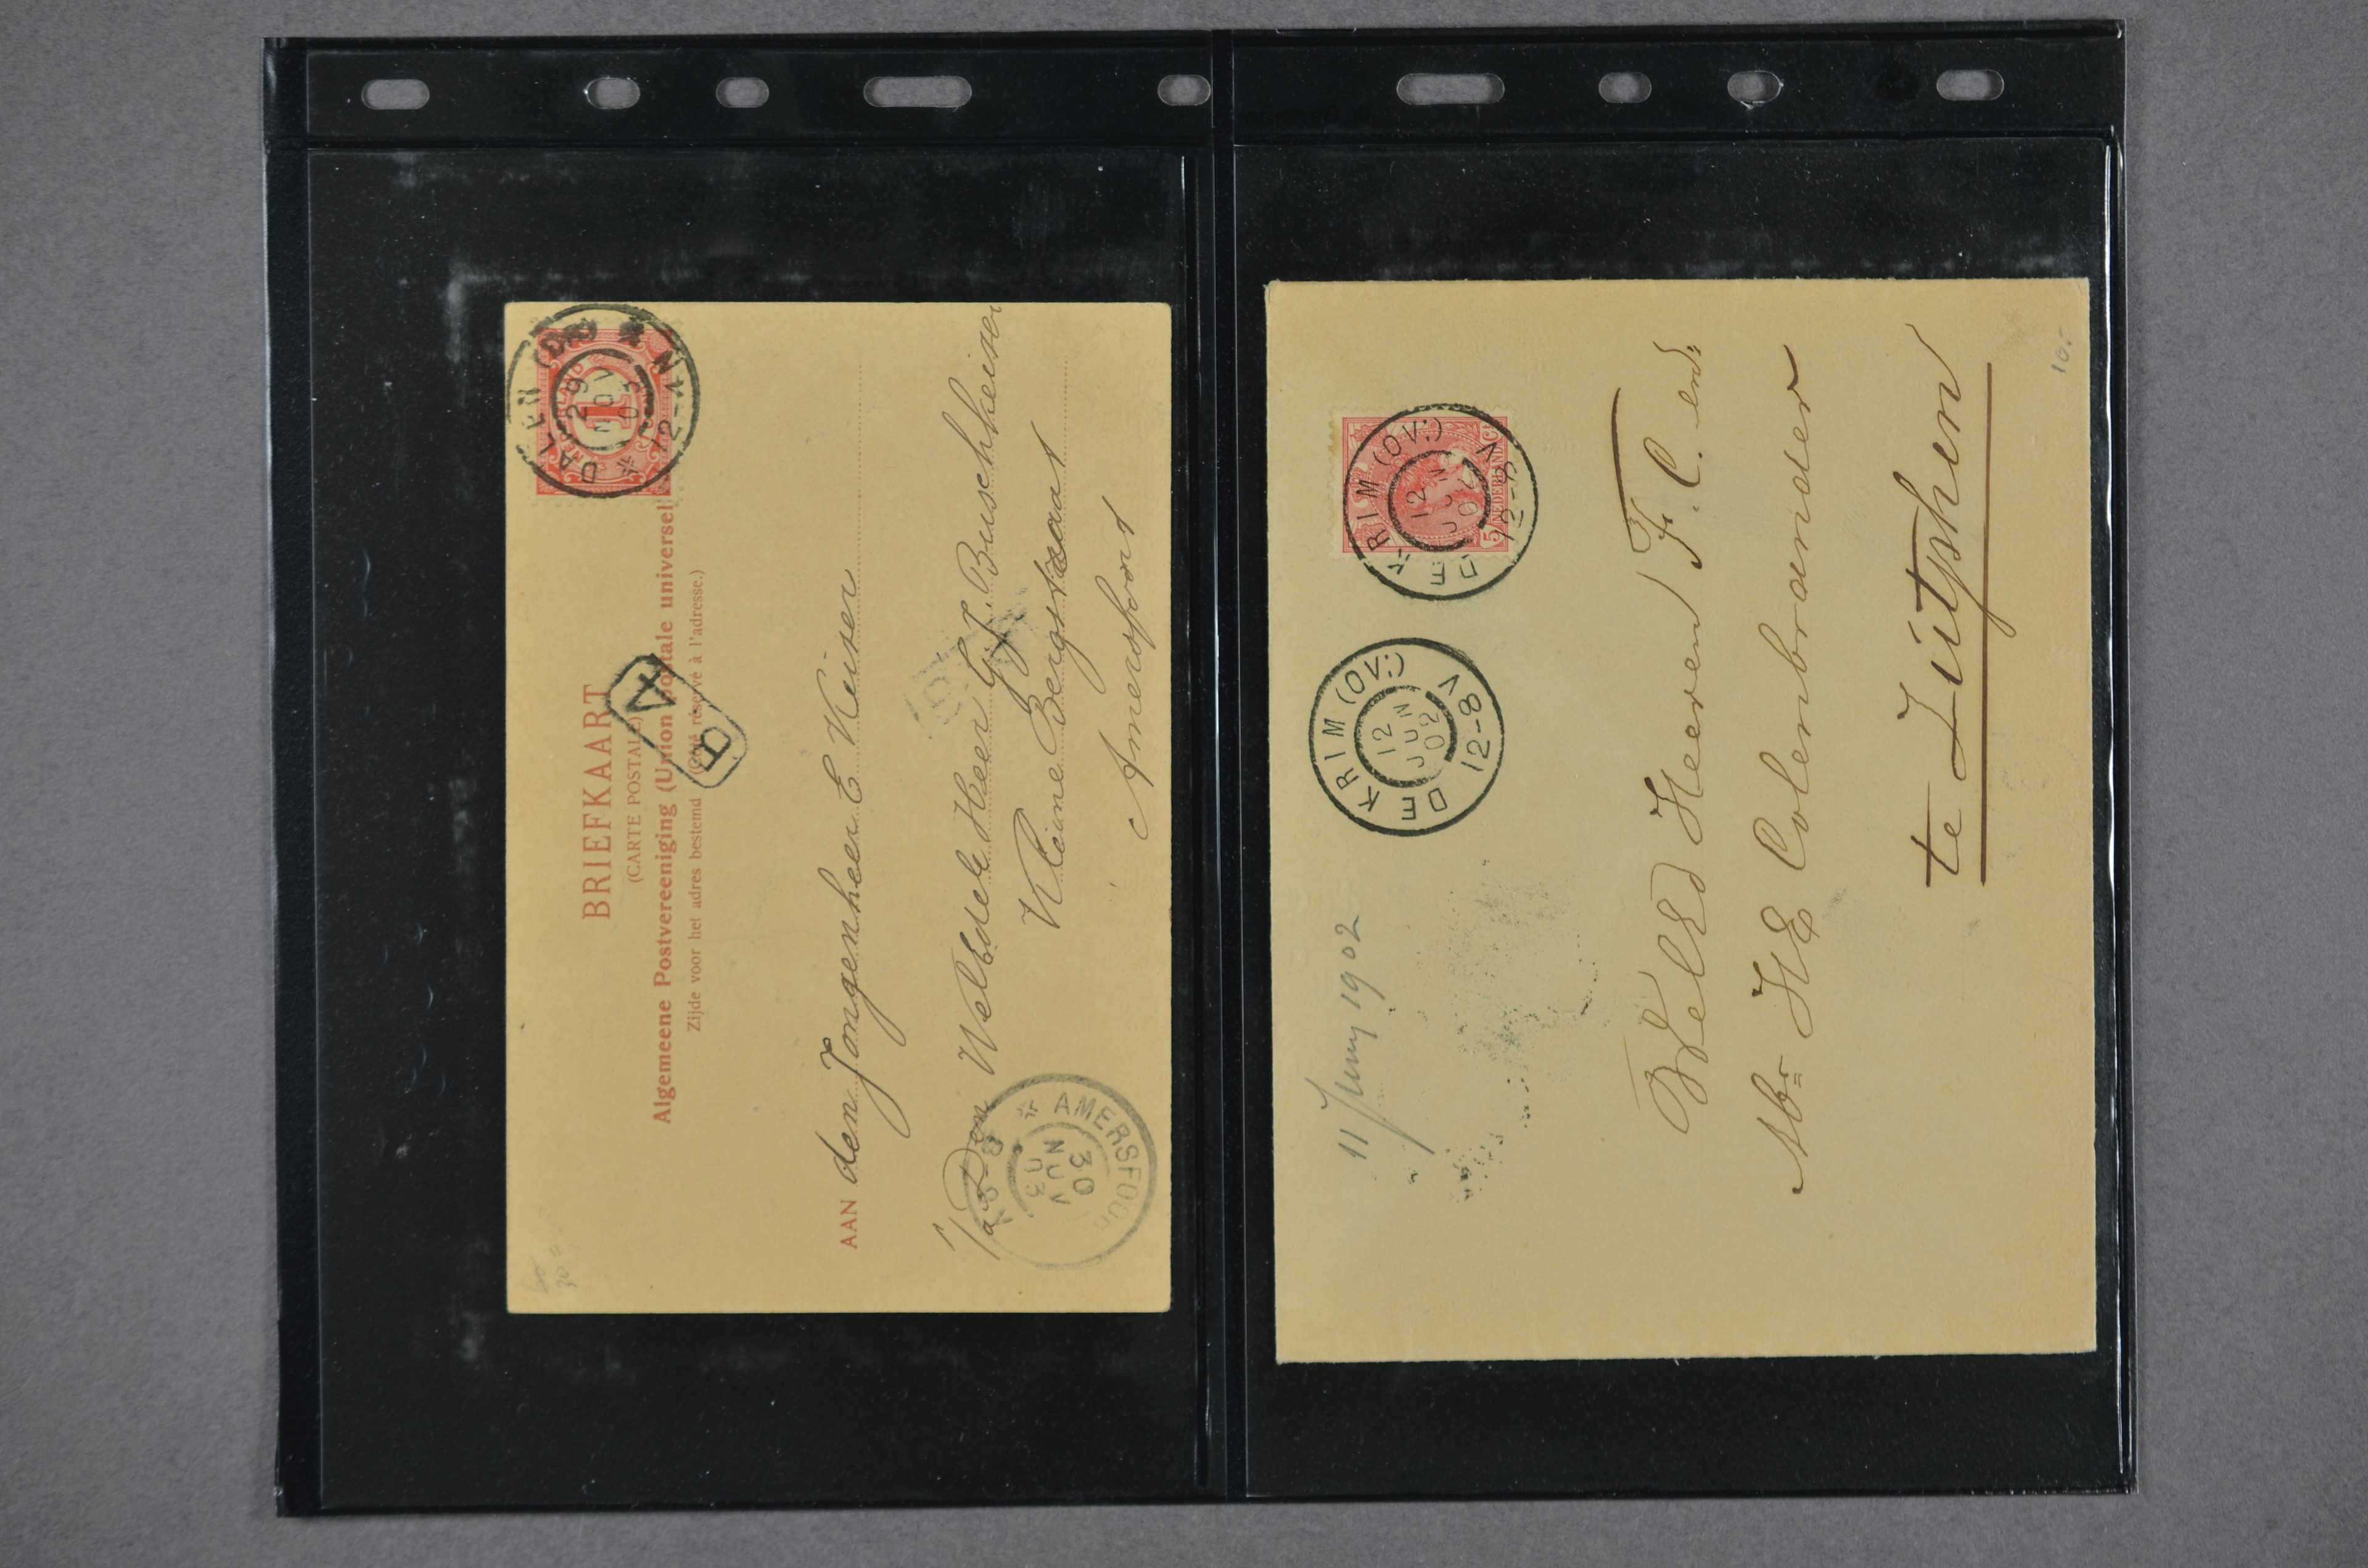 BRIEFKAART
(CARTE POSTALE)
Algemeene Postvereeniging (Union postale universelle)
Zijde voor het adres bestemd (Côté réservé à l'adresse.)
DALEN (DR)
29
NOV
03
12-4 N
1
B 4
AAN den Jongenheer E Keiser
p/a Den WelEdele Heer G.J. Buschheiner
Kleine Bergstraat
Amersfoort
AMERSFOORT
30
NOV
03
DE KRIM (OV:)
12
JUN
02
12-8V
5 NEDERLAND
DE KRIM (OV:)
12
JUN
02
12-8V
11 Juny 1902
WelEd Heeren F. C. en
Mr HE Colenbrander
te Zutphen
10.-